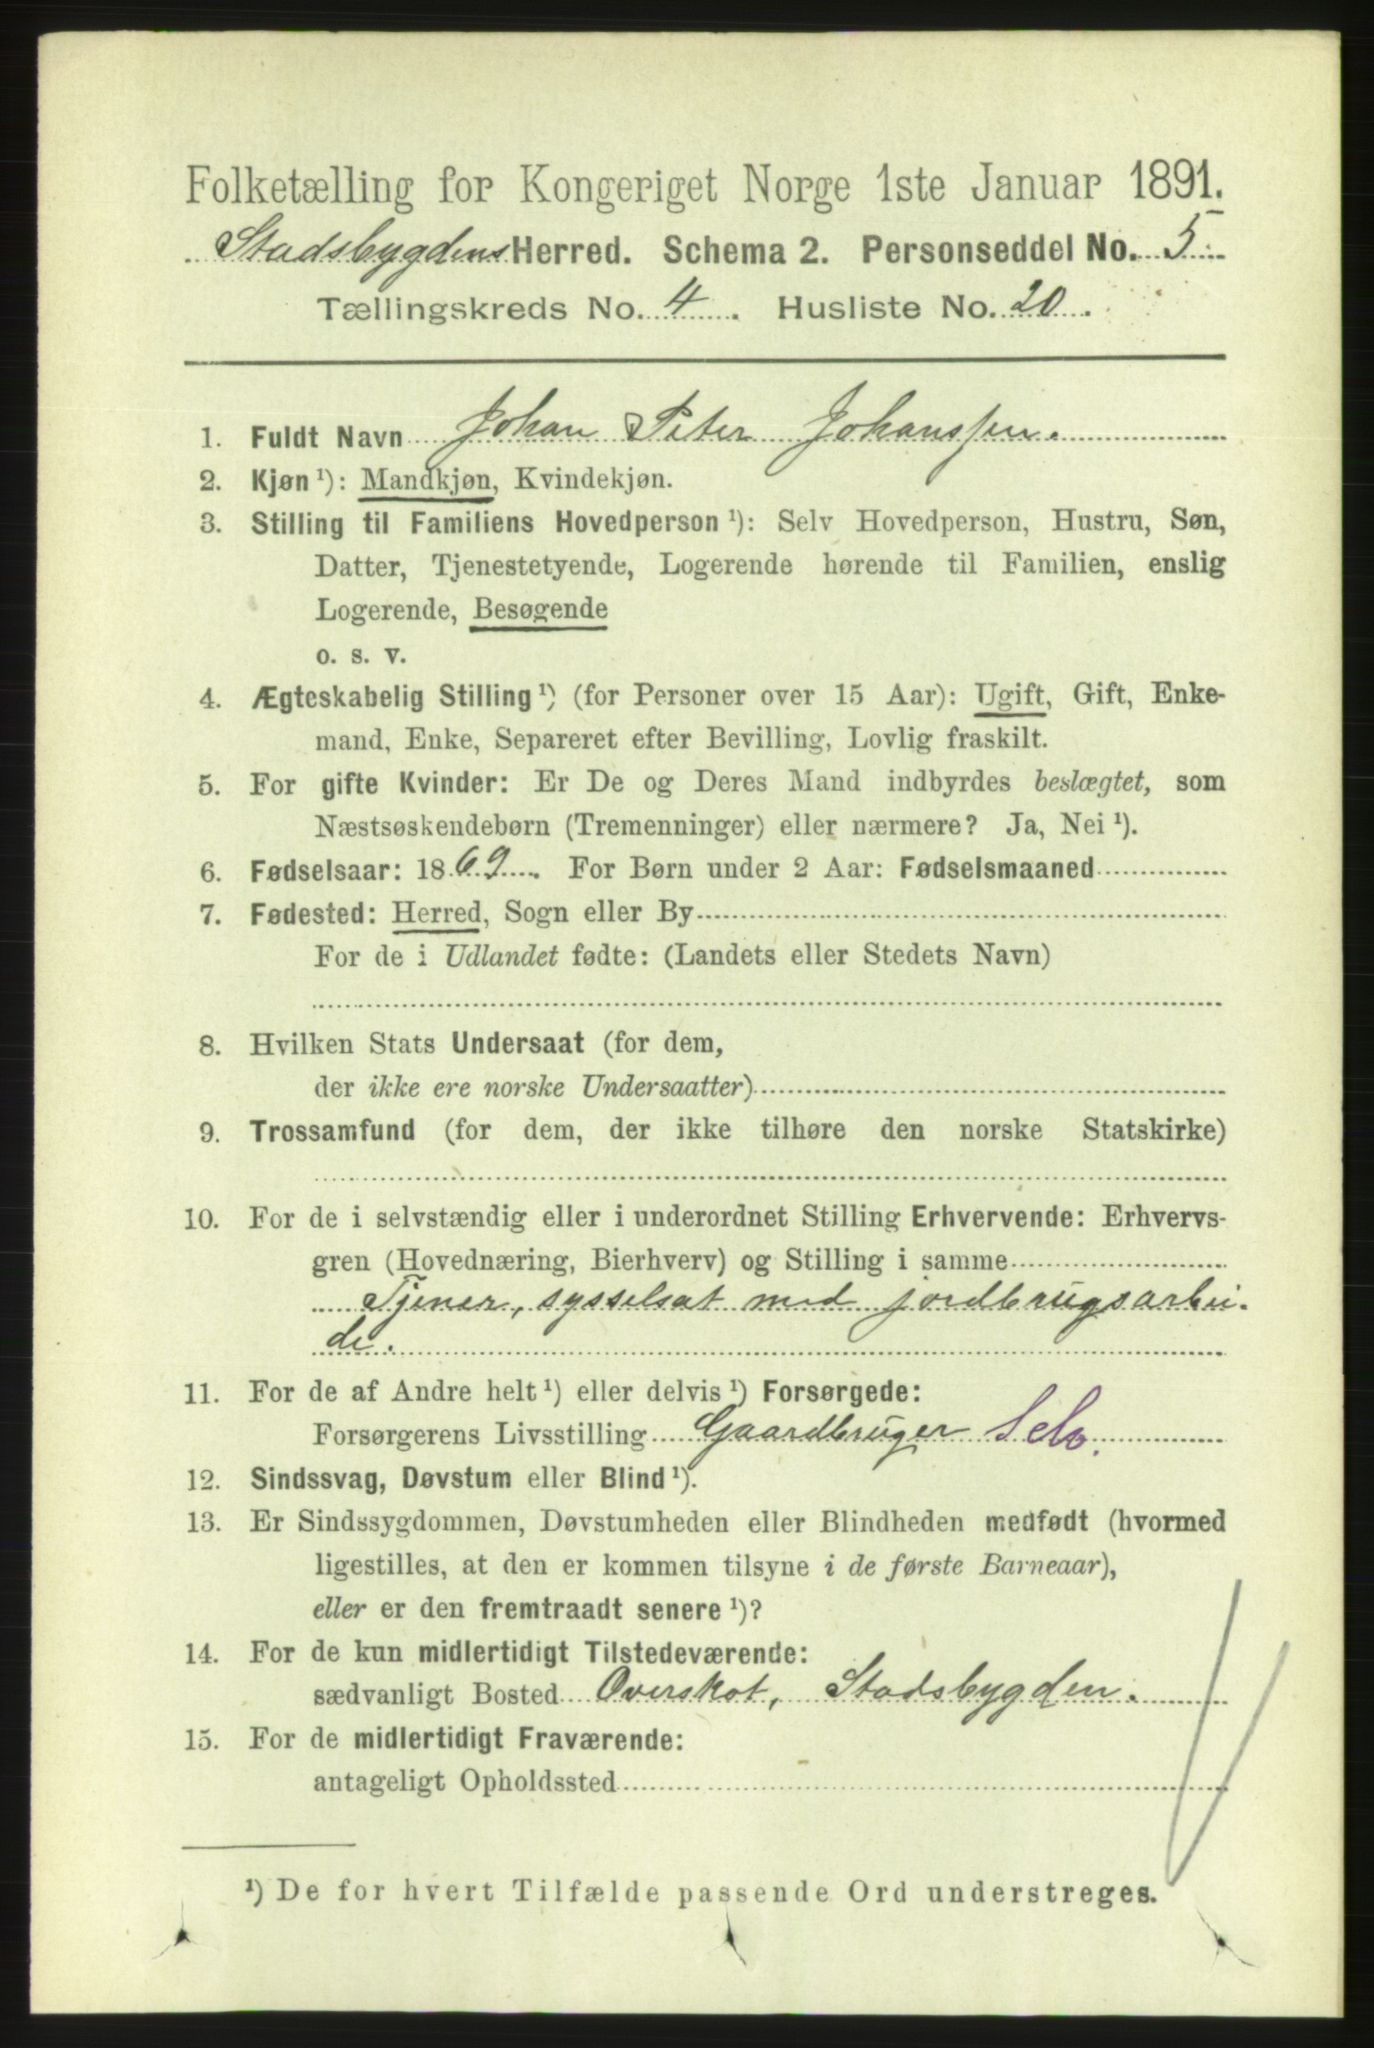 Folketælling for Kongeriget Norge 1ste Januar 1891.
Stadsbygdens Herred. Schema 2. Personseddel No. 5
Tællingskreds No. 4. Husliste No. 20.
1. Fuldt Navn Johan Peter Johanssen.
2. Kjøn ¹): Mandkjøn, Kvindekjøn.
3. Stilling til Familiens Hovedperson ¹): Selv Hovedperson, Hustru, Søn,
Datter, Tjenestetyende, Logerende hørende til Familien, enslig
Logerende, Besøgende
o. s. v.
4. Ægteskabelig Stilling ¹) (for Personer over 15 Aar): Ugift, Gift, Enke-
mand, Enke, Separeret efter Bevilling, Lovlig fraskilt.
5. For gifte Kvinder: Er De og Deres Mand indbyrdes beslægtet, som
Næstsøskendebørn (Tremenninger) eller nærmere? Ja, Nei ¹).
6. Fødselsaar: 1869. For Børn under 2 Aar: Fødselsmaaned
7. Fødested: Herred, Sogn eller By
For de i Udlandet fødte: (Landets eller Stedets Navn)
8. Hvilken Stats Undersaat (for dem,
der ikke ere norske Undersaatter)
9. Trossamfund (for dem, der ikke tilhøre den norske Statskirke)
10. For de i selvstændig eller i underordnet Stilling Erhvervende: Erhvervs-
gren (Hovednæring, Bierhverv) og Stilling i samme
Tjener, sysselsat med jordbrugsarbei-
de.
11. For de af Andre helt ¹) eller delvis ¹) Forsørgede:
Forsørgerens Livsstilling Gaardbruger Selv.
12. Sindssvag, Døvstum eller Blind ¹).
13. Er Sindssygdommen, Døvstumheden eller Blindheden medfødt (hvormed
ligestilles, at den er kommen tilsyne i de første Barneaar),
eller er den fremtraadt senere ¹)?
14. For de kun midlertidigt Tilstedeværende:
sædvanligt Bosted Overskot, Stadsbygden.
15. For de midlertidigt Fraværende:
antageligt Opholdssted
¹) De for hvert Tilfælde passende Ord understreges.